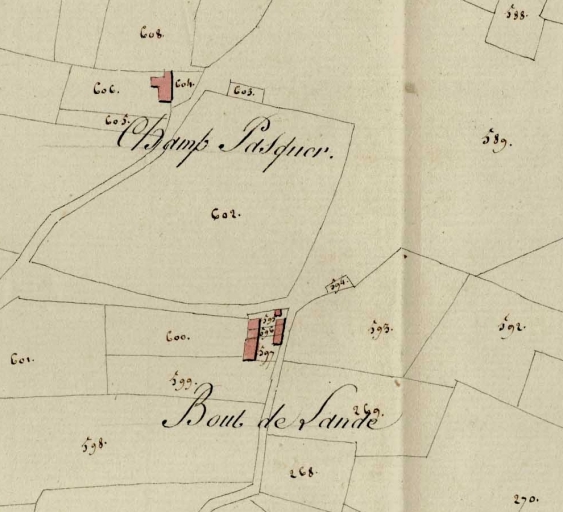 588.
608.
606.
604.
603.
605.
Champ Pasquer.
589.
602.
594.
595
596
593.
592.
600.
597
601.
599.
269.
Bout de Lande
598.
268.
270.